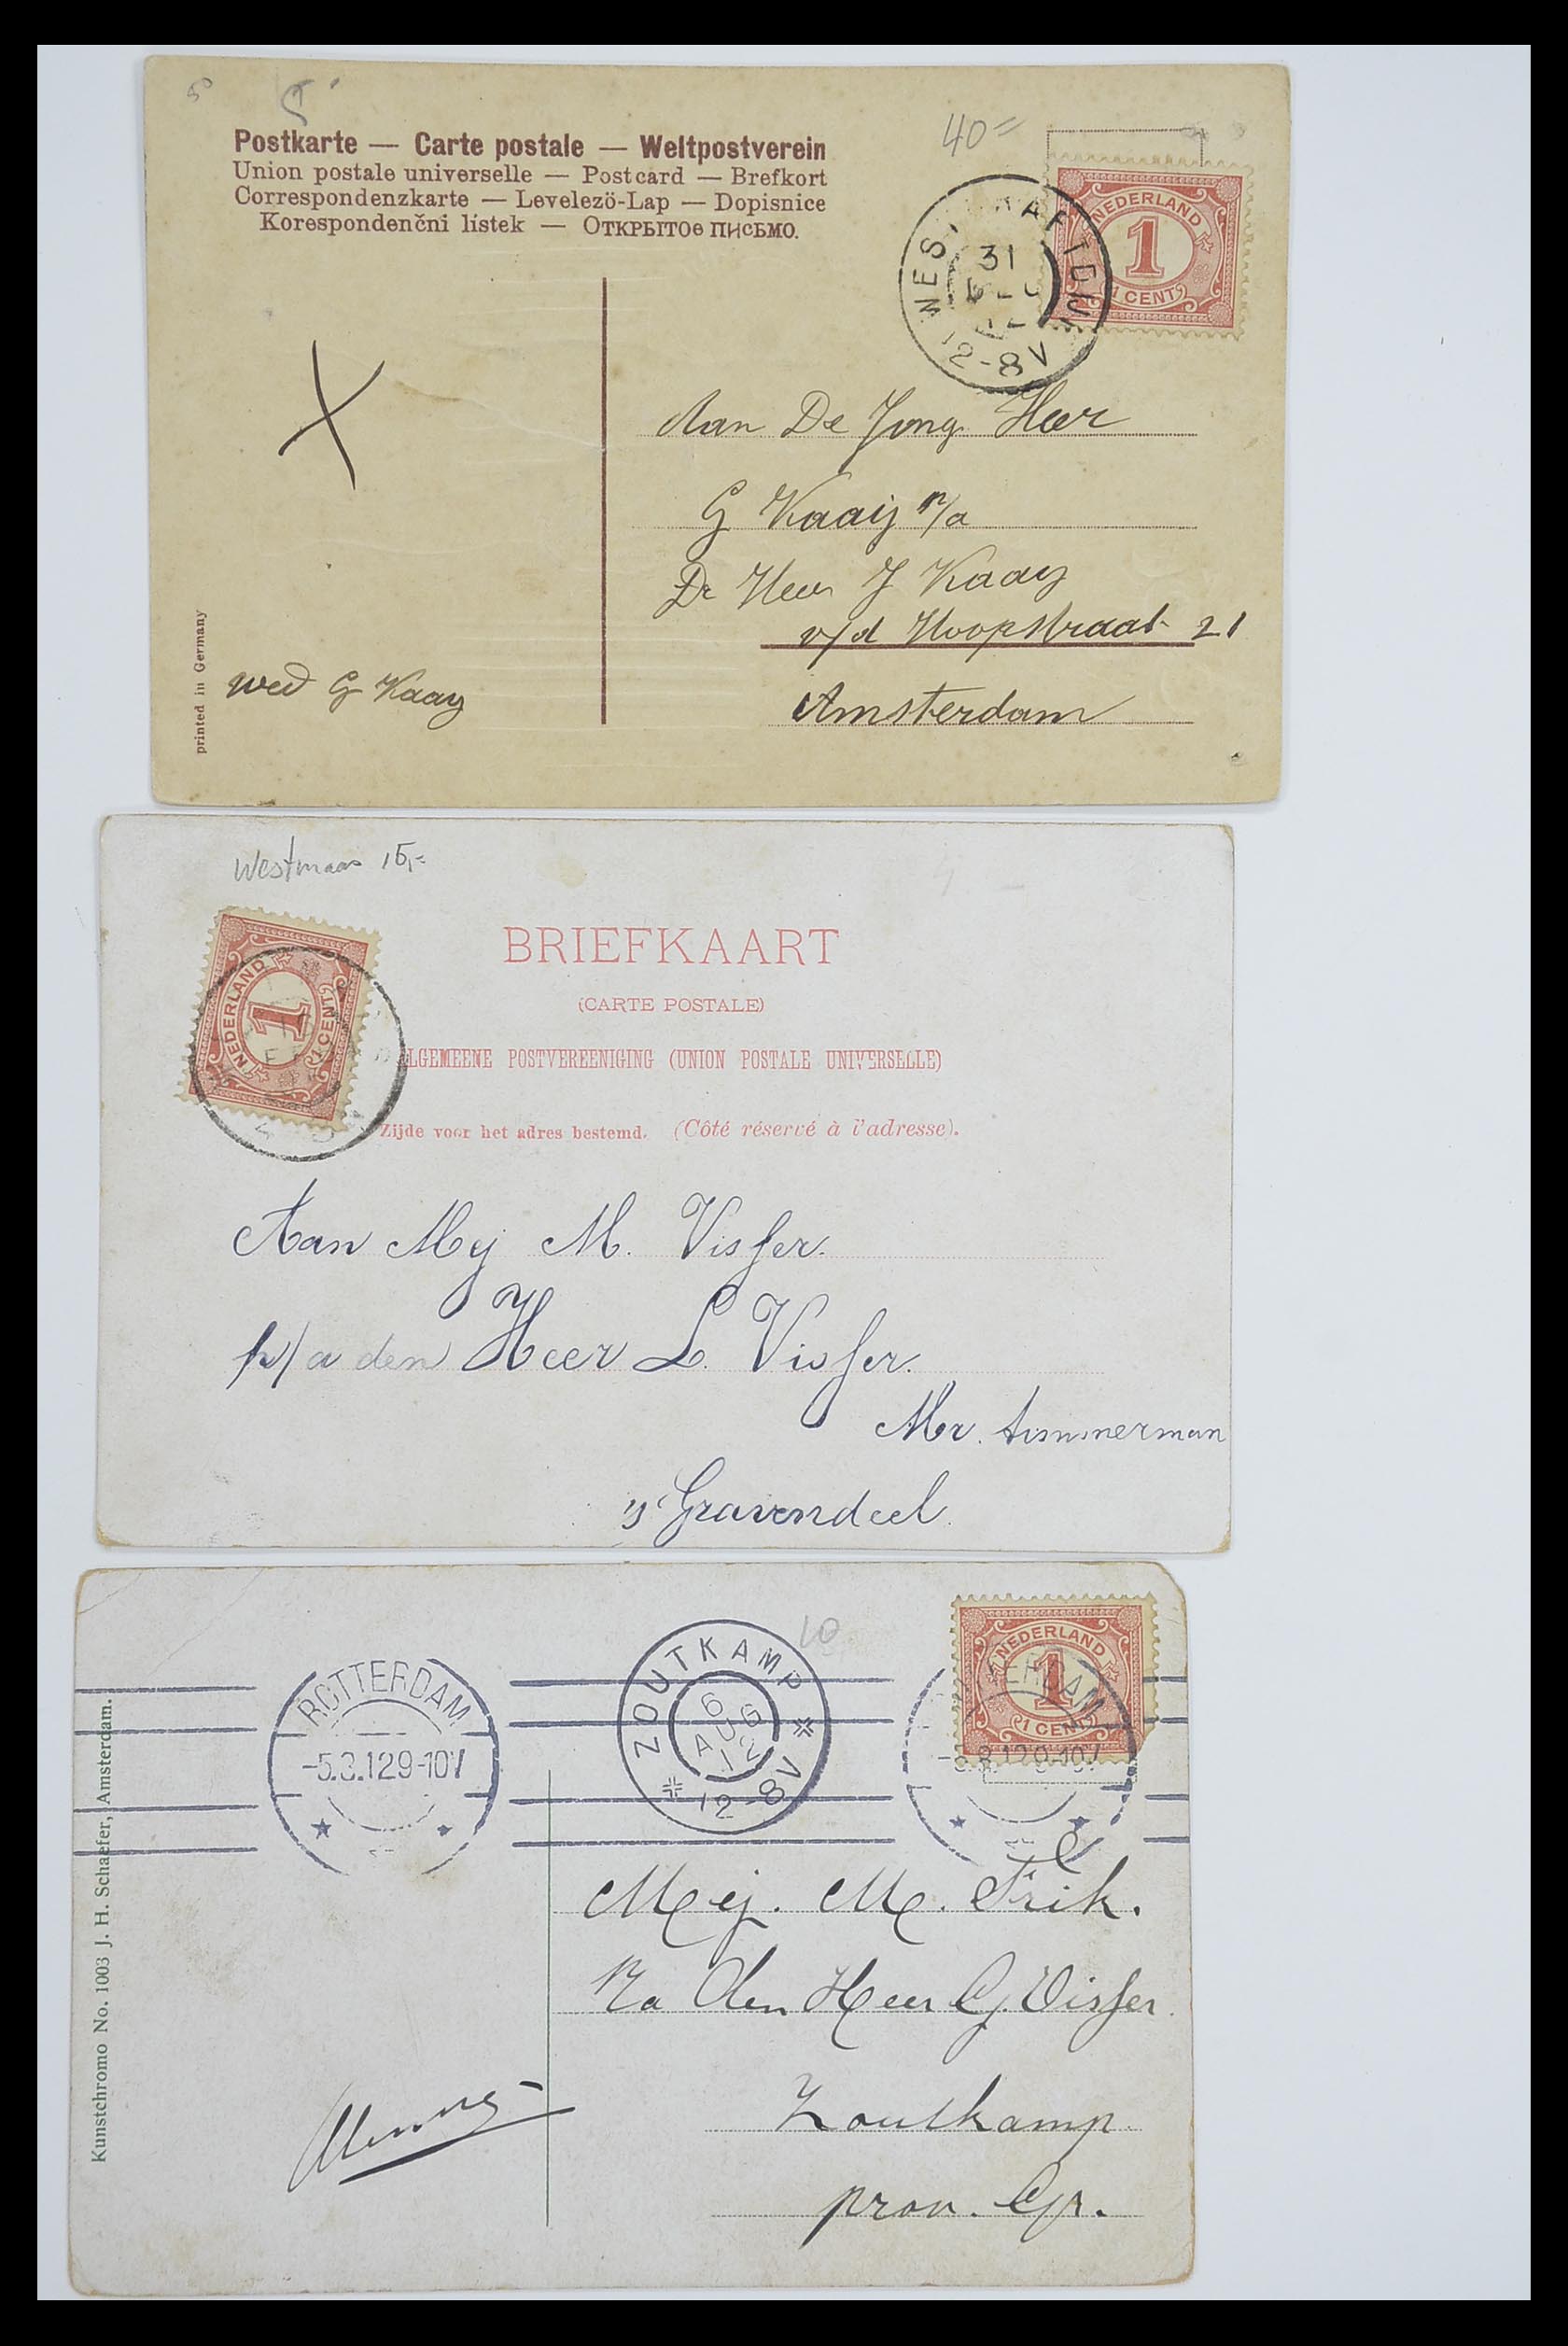 50
40=
Postkarte — Carte postale — Weltpostverein
Union postale universelle — Postcard — Brefkort
Correspondenzkarte — Levelezö-Lap — Dopisnice
Korespondenčni lístek — Открытое письмо.
NEDERLAND
1
1 CENT
31
12-8V
Aan De Jong Heer
G Kaaij p/a
De Heer J Kaay
v/d Hoopstraat 21
Amsterdam
wed G Kaay
printed in Germany
Westmaas 15,=
NEDERLAND
1
1 CENT
BRIEFKAART
(CARTE POSTALE)
ALGEMEENE POSTVEREENIGING (UNION POSTALE UNIVERSELLE)
Zijde voor het adres bestemd. (Côté réservé à l'adresse).
Aan Mej M. Visser.
p/a den Heer L. Visser.
Mr. timmerman
's Gravendeel.
10
ROTTERDAM
-5.8.12 9-10V
ZOUTKAMP
6 AUG 12
12-8V
NEDERLAND
1
1 CENT
9-10V
Mej. M. Frik.
P/a den Heer G. Visser.
Zoutkamp
prov. Gr.
Kunstchromo No. 1003 J. H. Schaefer, Amsterdam.